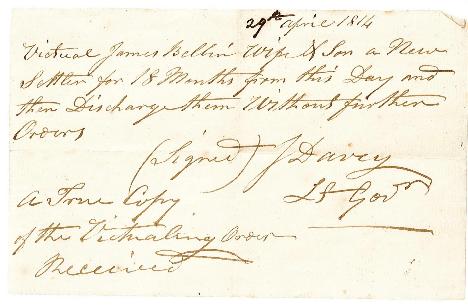 29th April 1814
Victual James Bellin Wife & Son a New
Settler for 18 Months from this Day and
then Discharge them Without further
Orders
(Signed) J Davey
Lt Govr
A True Copy
of the Victualing Order
Received